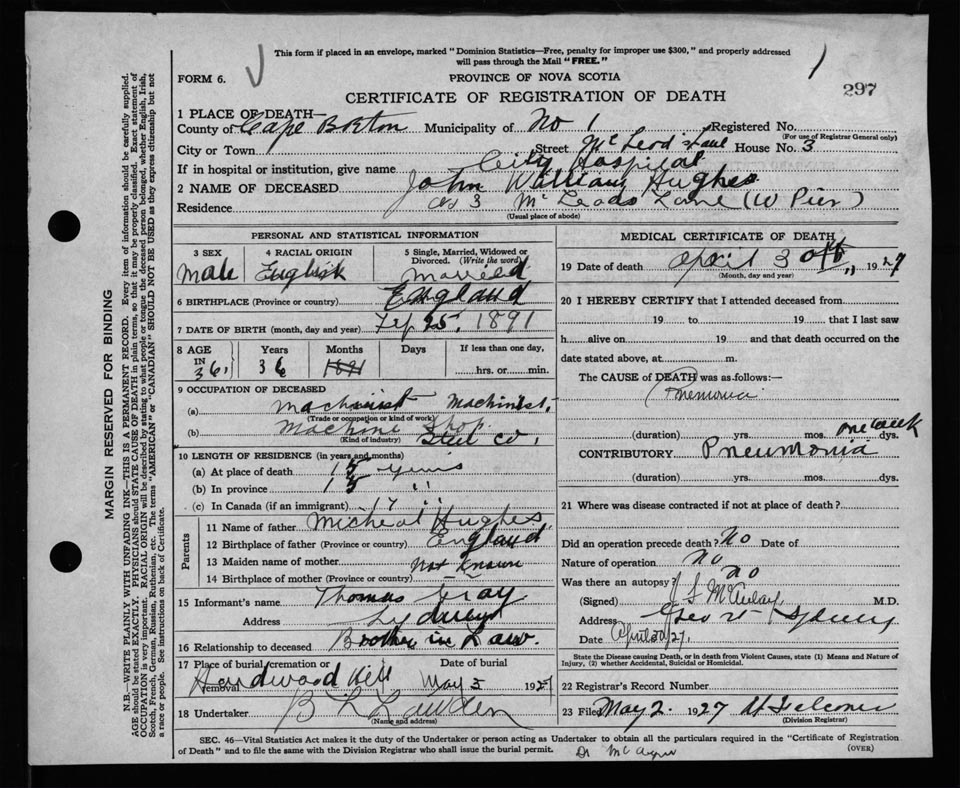 This form if placed in an envelope, marked "Dominion Statistics—Free, penalty for improper use $300," and properly addressed
will pass through the Mail "FREE."
FORM 6.
PROVINCE OF NOVA SCOTIA
1
297
CERTIFICATE OF REGISTRATION OF DEATH
1 PLACE OF DEATH—
County of Cape Breton Municipality of No 1 Registered No.
(For use of Registrar General only)
City or Town Street McLeod's Lane House No. 3
If in hospital or institution, give name City Hospital
2 NAME OF DECEASED John William Hughes
Residence 3 McLeods Lane (W Pier)
(Usual place of abode)
PERSONAL AND STATISTICAL INFORMATION
3 SEX 4 RACIAL ORIGIN 5 Single, Married, Widowed or Divorced. (Write the word)
Male English Married
6 BIRTHPLACE (Province or country) England
7 DATE OF BIRTH (month, day and year) 25, 1891
8 AGE IN Years Months Days If less than one day,
36, 36 1891 hrs. or min.
9 OCCUPATION OF DECEASED
(a) Machinist Machinist.
(Trade or occupation or kind of work)
(b) Machine Shop. Steel Co,
(Kind of industry)
10 LENGTH OF RESIDENCE (in years and months)
(a) At place of death 15 years
(b) In province 15 "
(c) In Canada (if an immigrant) 17 "
Parents
11 Name of father Micheal Hughes
12 Birthplace of father (Province or country) England
13 Maiden name of mother Not Known
14 Birthplace of mother (Province or country)
15 Informant's name Thomas Gray
Address Sydney
16 Relationship to deceased Brother in Law.
17 Place of burial, cremation or removal Date of burial
Hardwood Hill May 3 1927
18 Undertaker
(Name and address)
MEDICAL CERTIFICATE OF DEATH
19 Date of death April 30th, 1927
(Month, day and year)
20 I HEREBY CERTIFY that I attended deceased from
19 to 19 that I last saw
h alive on 19 and that death occurred on the
date stated above, at m.
The CAUSE of DEATH was as follows:—
Pnemonia
(duration) yrs. mos. one week dys.
CONTRIBUTORY Pneumonia
(duration) yrs. mos. dys.
21 Where was disease contracted if not at place of death?
Did an operation precede death? No Date of
Nature of operation No
Was there an autopsy No
(Signed) M.D.
Address Sydney
Date April 30/27.
State the Disease causing Death, or in death from Violent Causes, state (1) Means and Nature of
Injury, (2) whether Accidental, Suicidal or Homicidal.
22 Registrar's Record Number
23 Filed May 2. 1927
(Division Registrar)
SEC. 46—Vital Statistics Act makes it the duty of the Undertaker or person acting as Undertaker to obtain all the particulars required in the "Certificate of Registration
of Death" and to file the same with the Division Registrar who shall issue the burial permit.
(OVER)
MARGIN RESERVED FOR BINDING
N.B.—WRITE PLAINLY WITH UNFADING INK—THIS IS A PERMANENT RECORD. Every item of information should be carefully supplied.
AGE should be stated EXACTLY. PHYSICIANS should STATE CAUSE OF DEATH in plain terms, so that it may be properly classified. Exact statement of
OCCUPATION is very important. RACIAL ORIGIN will be described by stating to what people or tongue the deceased person belonged, whether English, Irish,
Scotch, French, German, Russian, Ruthenian, etc. The terms "AMERICAN" or "CANADIAN" SHOULD NOT BE USED as they express citizenship but not
a race or people. See instructions on back of Certificate.